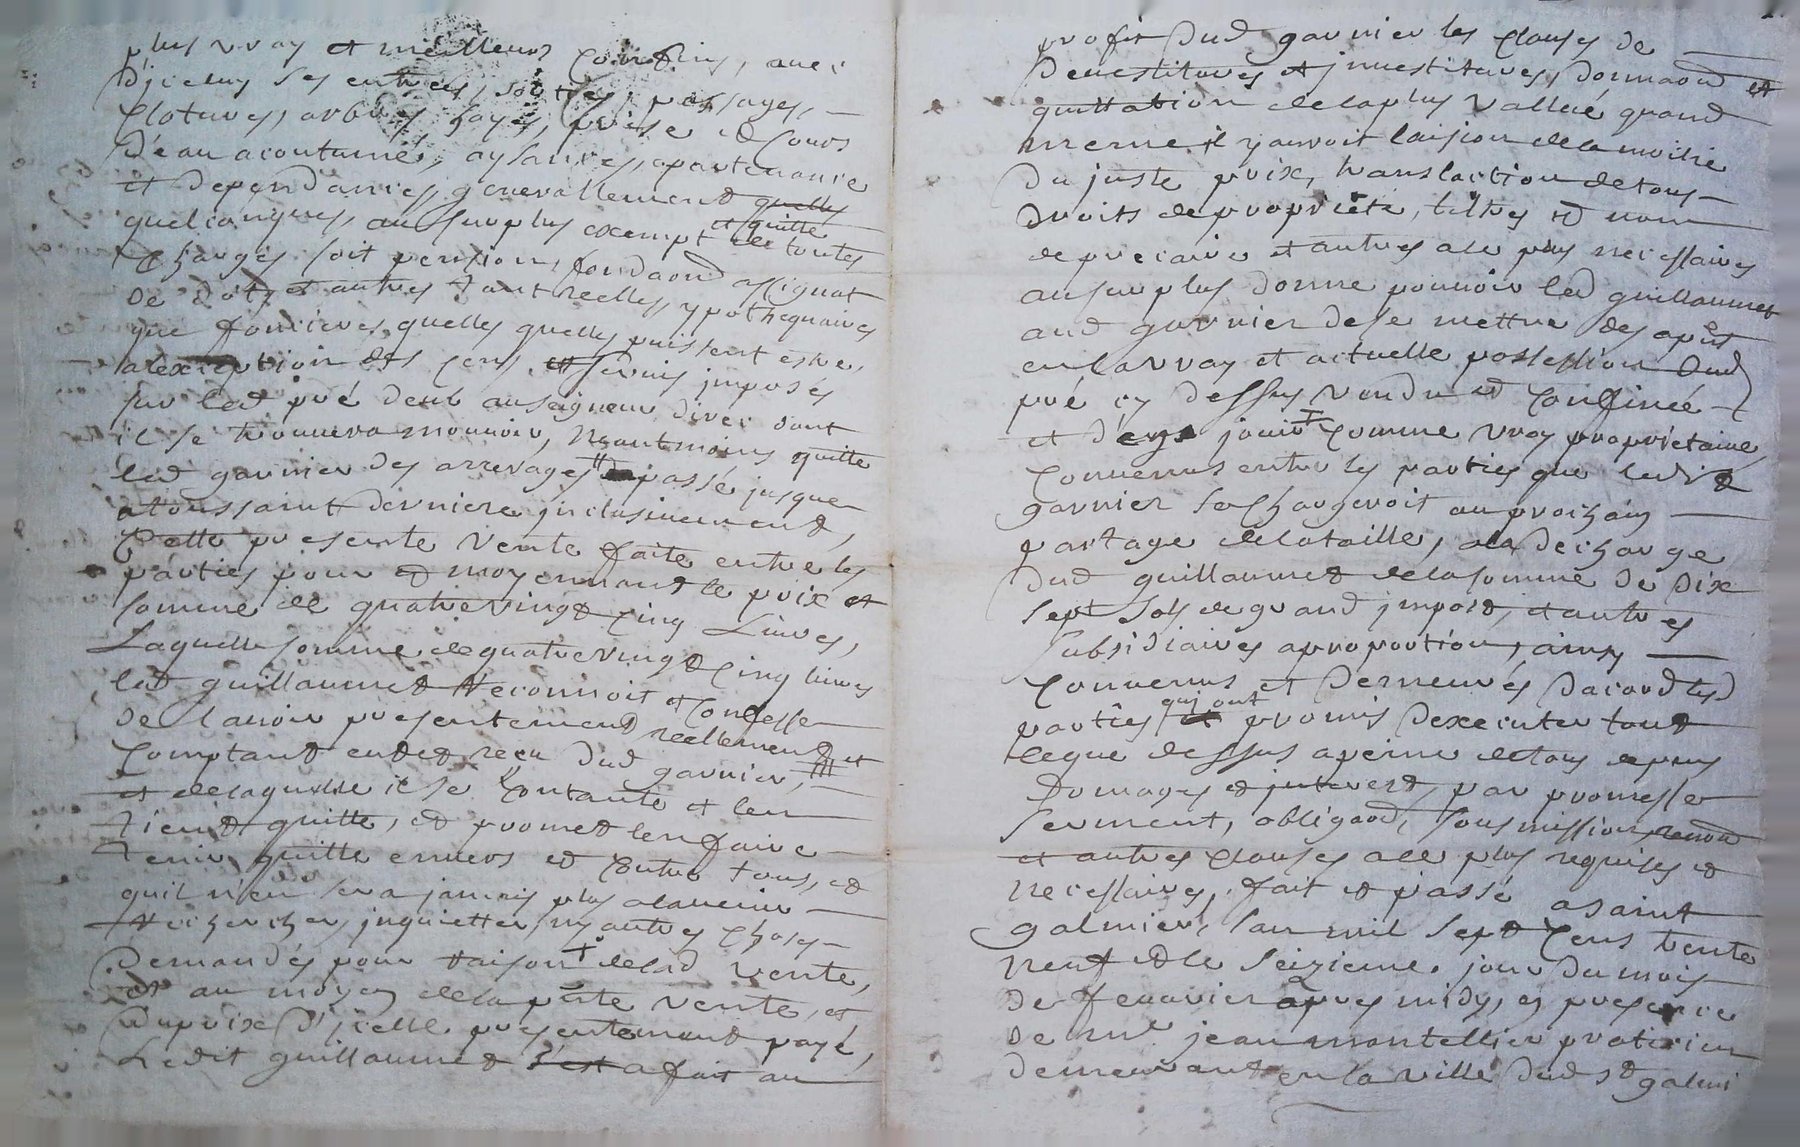 plus vray et meilleurs confins, avec
d'jceluy ses entrées, sorties, passages,
clotures, arbres hayes, prise et cours
d'eau acoutumé, aysances, apartenance
et dependances, generallement quelles
quelconques, au surplus exempt et quitte de toutes
charges soit pension, fondaõn assignat
de dots et autres tant reelles, ypothequaires
que foncieres, quelles quelles puissent estre,
alexception des cens et servis imposés
sur led pré deub au seigneur direc dont
il se trouvera mouvoir, neantmoins quitte
led garnier des arrerages du passé jusque
atoussaint derniere jnclusivement,
Cette presente vente faite entre les
parties pour et moyennant le prix et
somme de quatrevingt cinq Livres,
Laquelle somme de quatrevingt cinq livres
led guillaumet reconnoit et confesse
de lavoir presentement reellement et
comptant eu et reçu dud garnier,
et de laquelle il se contante et len
tient quitte, et promet len faire
tenir quitte envers et contre tous, et
quil n'en sera jamais plus alavenir
recherchér, jnquietter, ny autres choses
demandés pour raison de lad vente,
et au moyen de la pnte vente, et
du prix d'jcelle presentement payé,
Ledit guillaumet s'est a fait au
profit dud garnier les clauses de
devestitures et jnvestitures, donnaõn et
quittation de la plus vallue quand
meme il y auroit laision de la moitié
du juste prix, translaction de tous
droits de proprieté, tiltres et nom
de precaire et autres ace plus necessaires
au surplus donne pouvoir led guillaumet
aud garnier de se mettre des apnt
en la vray et actuelle possession dud
pré cy dessus vendu et confiné
et d'en jouir comme vray proprietaire,
Convenus entre les parties que ledit
garnier se chargeroit au prochain
partage de la taille, ala decharge
dud guillaumet de la somme de dix
sept sols de grand jmpost, et autres
subsidiaires aproportion, ainsy
convenus et demeurés dacord lesd
parties qui ont promis dexecuter tout
ceque dessus apeine de tous depens
domages et jnterest, par promesse
serment, obligaõn, soumission, renonõn
et autres clauses ace plus requises et
necessaires, fait et passé asaint
galmier, lan mil sept cens trente
neuf et le seizieme jour du mois
de fevrier apres midy, en presence
de mre jean montellier praticien
demeurant en la ville dud st galmi